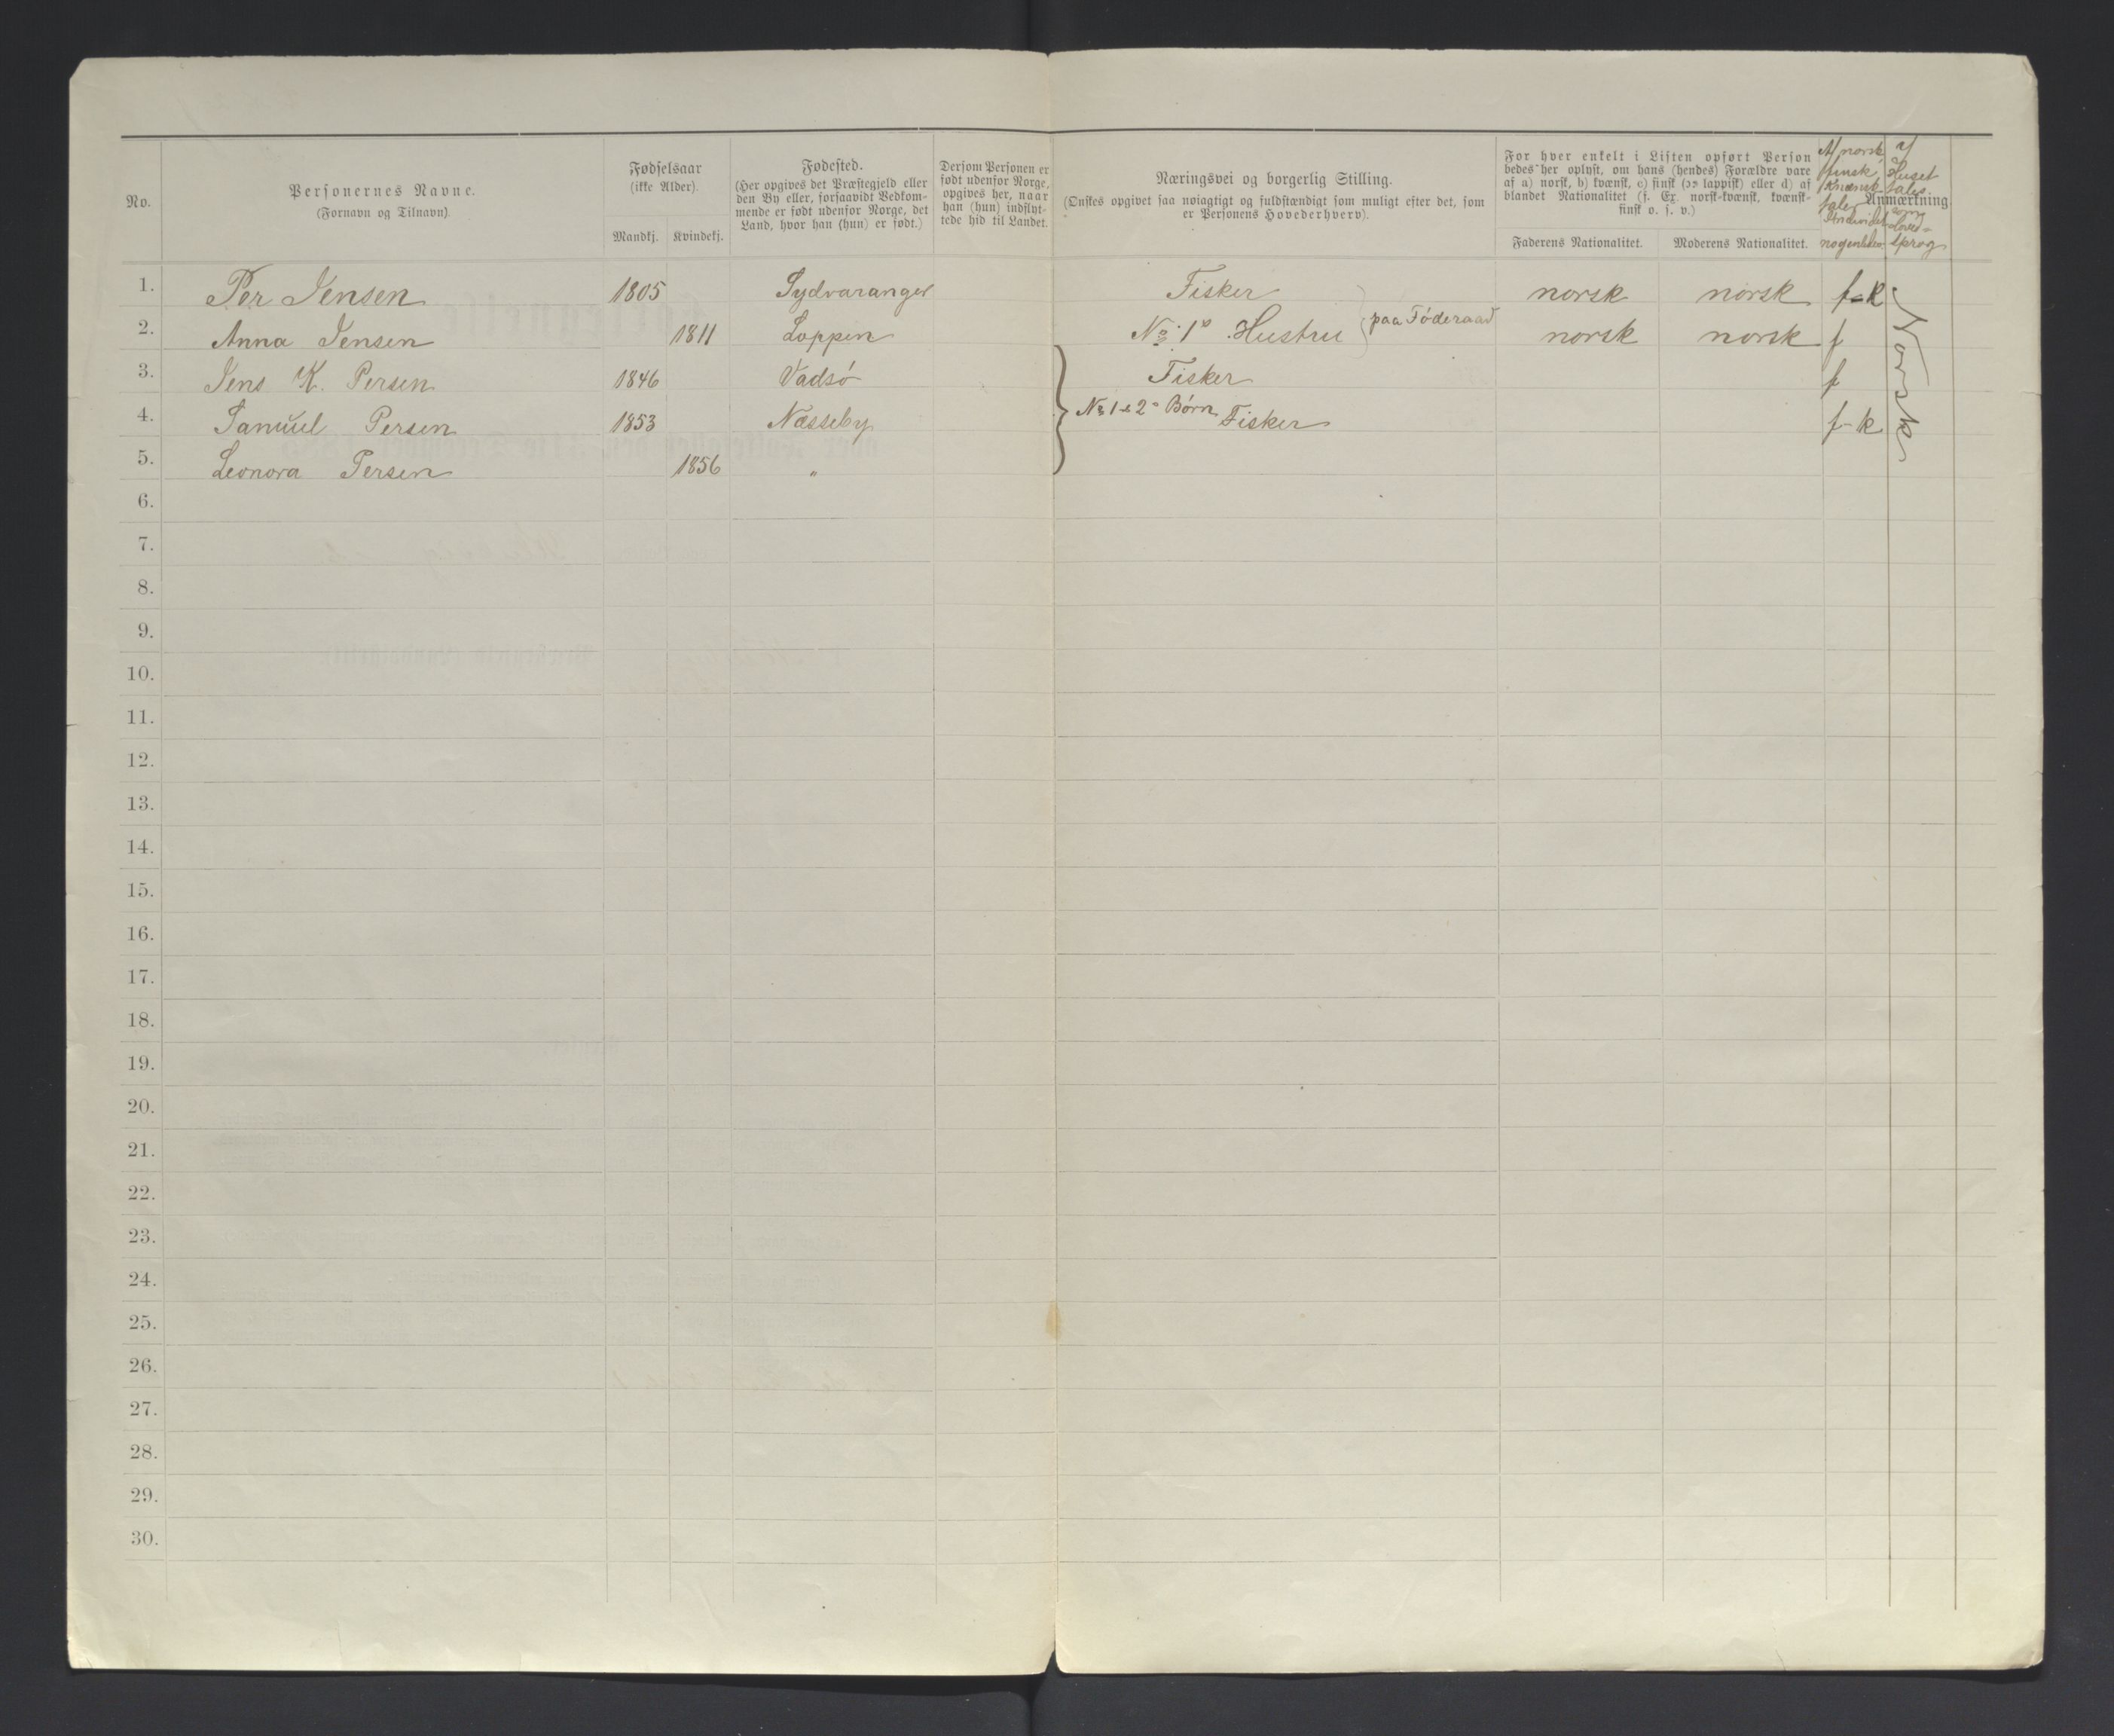 No.
Personernes Navne.
(Fornavn og Tilnavn)
Fødselsaar
(ikke Alder).
Mandkj. Kvindekj.
Fødested.
(Her opgives det Præstegjeld eller
den By eller, forsaavidt Vedkom-
mende er født udenfor Norge, det
Land, hvor han (hun) er født.)
Dersom Personen er
født udenfor Norge,
opgives her, naar
han (hun) indflyt-
tede hid til Landet.
Næringsvei og borgerlig Stilling.
(Ønskes opgivet saa nøiagtigt og fuldstændigt som muligt efter det, som
er Personens Hovederhverv).
For hver enkelt i Listen opført Person
bedes her oplyst, om hans (hendes) Forældre vare
af a) norsk, b) kvænsk, c) finsk (ↄ: lappisk) eller d) af
blandet Nationalitet (f. Ex. norsk-kvænsk, kvænsk-
finsk o. s. v.)
Faderens Nationalitet. Moderens Nationalitet.
Anmærkning.
Af norsk,
finsk
Kvænsk
taler
Individet
I
Huset
tales
som
Hoved-
sprog
1. Per Jensen 1805 Sydvaranger Fisker norsk norsk f-k
paa Föderaad
2. Anna Jensen 1811 Loppen No 1s Hustru norsk norsk f
3. Jens K. Persen 1846 Vadsö Fisker f
4. Samuel Persen 1853 Næsseby No 1 & 2s Börn Fisker f-k
5. Leonora Persen 1856 „
Norsk
6.
7.
8.
9.
10.
11.
12.
13.
14.
15.
16.
17.
18.
19.
20.
21.
22.
23.
24.
25.
26.
27.
28.
29.
30.